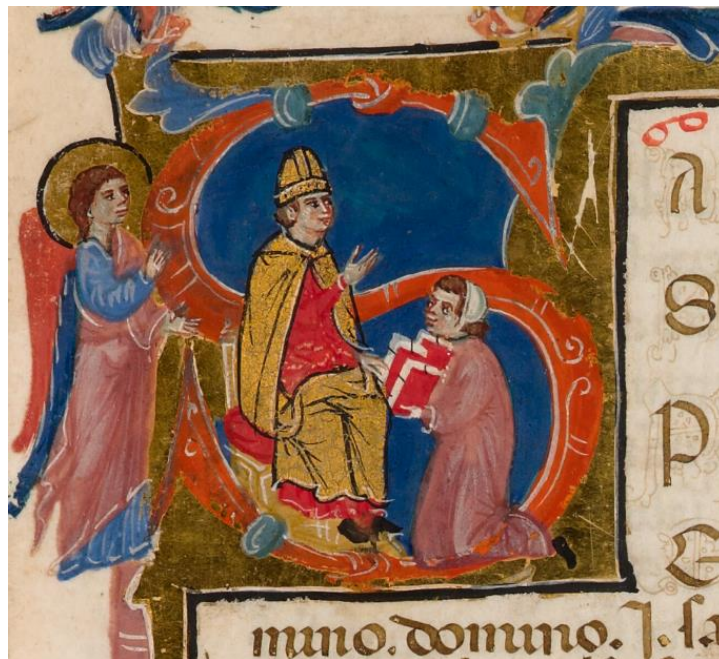 A
S
P
E
mino. domino. J. sa